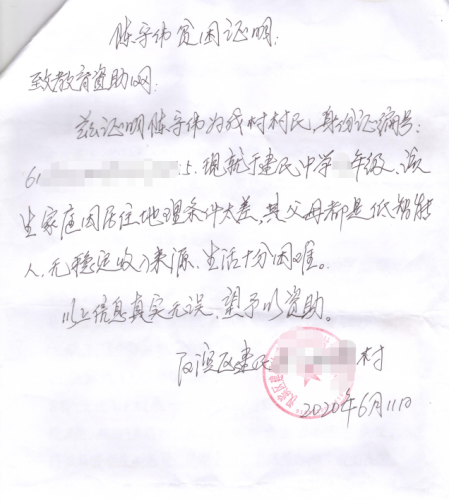 陈守伟贫困证明:
致教育资助网:
兹证明陈守伟为我村村民,身份证编号:
61 5.现就于建民中学 年级、该
生家庭因居住地理条件太差,其父母都是低智能
人,无稳定收入来源、生活十分困难。
以上信息真实无误,望予以资助。
汉滨区建民 村
2020年6月11日